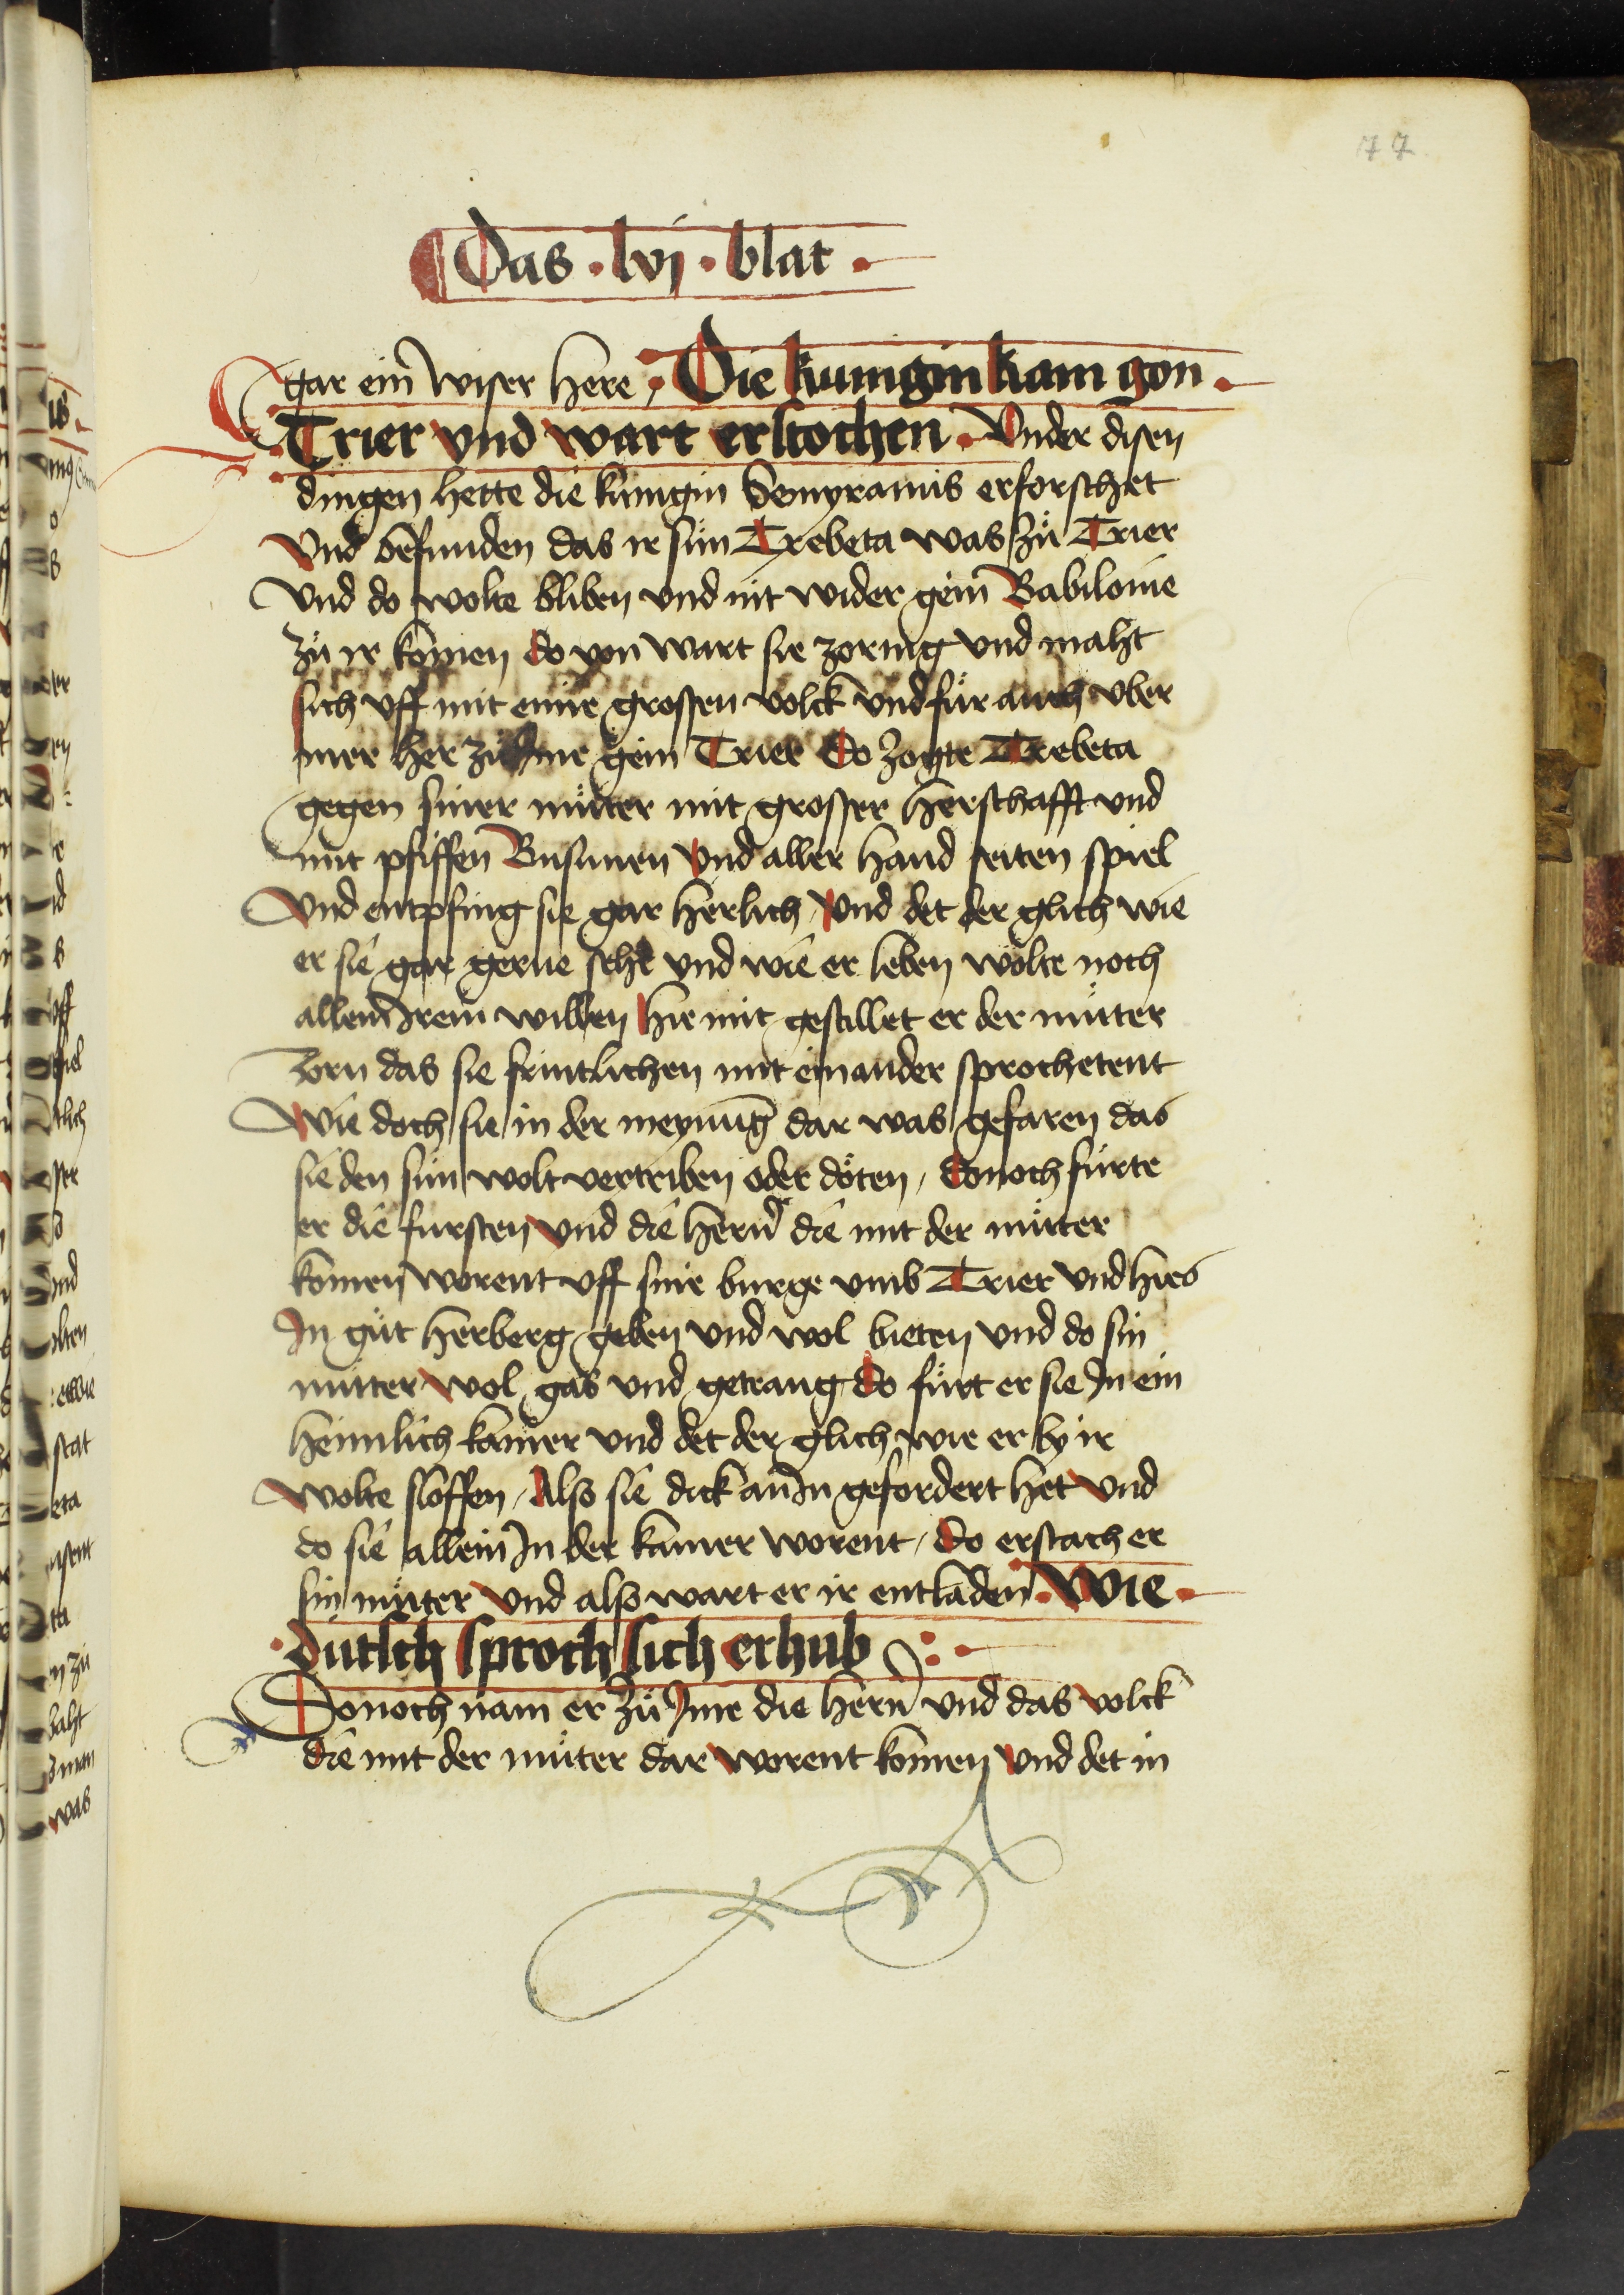 77
Das · lvj · blat ·
gar ein wiser here, Die kunigin kam gon ·
Trier vnd wart erstochen · Vnder disen
dingen hette die kunigin Semyramis erforschet
Vnd befunden das ir sün Trebeta was zů Trier
Vnd do wolte bliben vnd nit wider gein Babilonie
zů ir komen do von wart sie zornig vnd maht
sich vff mit eime grossen volck vnd fůr auch vber
mer her zů Ime gein Trier Do zogte Trebeta
gegen siner můtter mit grosser herschafft vnd
mit pfiffen Busunen vnd aller hand seiten spiel
Vnd entpfing sie gar herlich, Vnd det der glich wie
er sie gar gerne sehe vnd wie er leben wolte noch
allem Irem willen hie mit gestillet er der můtter
zorn das sie fruntlichen mit einander sprochetent
Wie doch sie in der meynung dar was gefaren das
sie den sün wolt vertriben oder döten, Donoch fürte
er die fursten vnd die hern die mit der můtter
komen worent vff sine burge vmb Trier vnd hies
In gůt herberg geben vnd wol bieten vnd do sin
můtter wol gas vnd getrang do fürt er sie In ein
heimlich kamer vnd det der glich wie er by ir
wolte sloffen, Also sie dick an In gefordert het vnd
do sie allein In der kamer worent, do erstach er
sin můtter vnd also wart er ir entladen · Wie ·
· dutsch sproch sich erhub
Donoch nam er zů Ime die hern vnd das volck
die mit der můter dar worent komen vnd det in